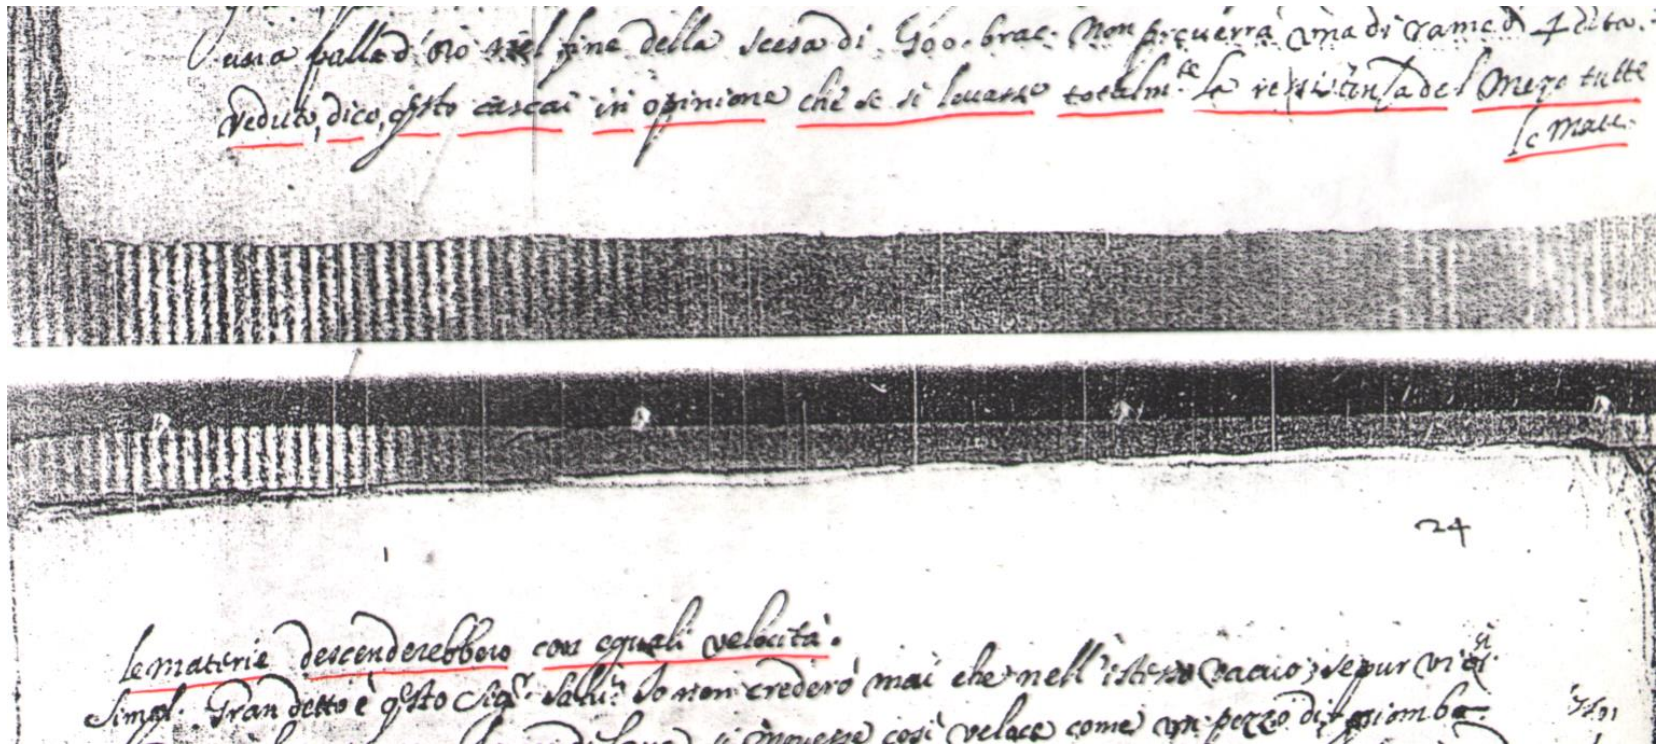 una palla d'oro nel fine della scesa di 600. brac. non p.cuerrà una di rame di 4 dita.
veduto, dico, qsto cascai in opinione che se si leuasse totalm.te la resistenza del mezo tutte
le mate.
24
le materie descenderebbero con eguali velocità.
Simpl. Gran detto è qsto Sigr. Salu. Io non crederò mai che nell'istesso vacuo, se pur vi
si mouesse così veloce come un pezzo di piombo.